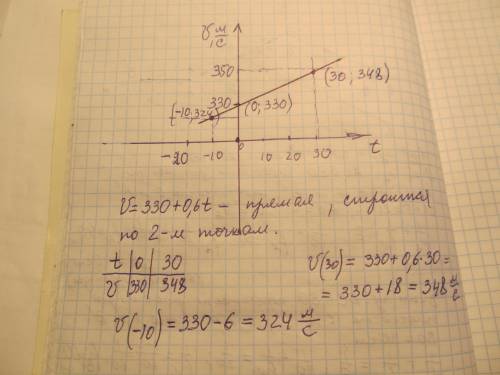 V, м/с
350
(30; 348)
330
(0; 330)
(-10; 324)
-20 -10 0 10 20 30 t
V=330+0,6t – прямая, строится
по 2-м точкам.
t | 0 | 30
V | 330 | 348
V(30) = 330+0,6·30=
= 330+18 = 348 м/с
V(-10) = 330-6 = 324 м/с